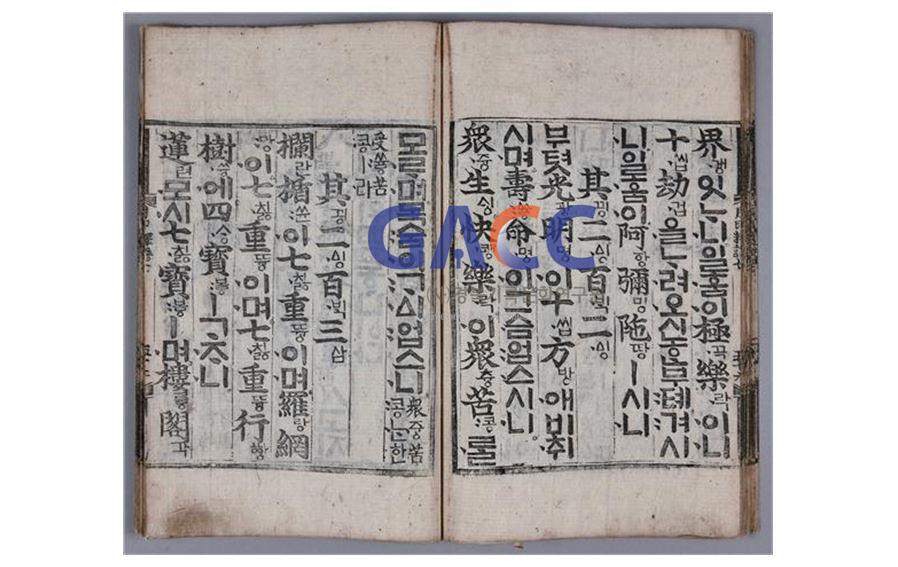 界갱잇ᄂᆞ니일훔이極끅樂락이니
十씹劫겁을ᄂᆞ려오신부톄겨시
니일훔이阿ᅙᅡᆼ彌밍陁땅ㅣ시니
其끵二ᅀᅵᆼ百ᄇᆡᆨ二ᅀᅵᆼ
부텻光광明명이十씹方방애비취
시며壽쓩命명이ᄀᆞᇫ업스시니
衆즁生ᄉᆡᆼ快쾡樂락이衆즁苦콩ᄅᆞᆯ
모ᄅᆞ며목숨이ᄀᆞᇫ업스니衆즁苦콩ᄂᆞᆫ한
受쓩苦콩ㅣ라
其끵二ᅀᅵᆼ百ᄇᆡᆨ三삼
欄란楯쓘이七칧重뜡이며羅랑網
망이七칧重뜡이며七칧重뜡行ᅘᅢᆼ
樹쓩에四ᄉᆞᆼ寶보ᇢㅣᄀᆞ초니
蓮련모시七칧寶보ᇢㅣ며樓루ᇢ閣각
GACC